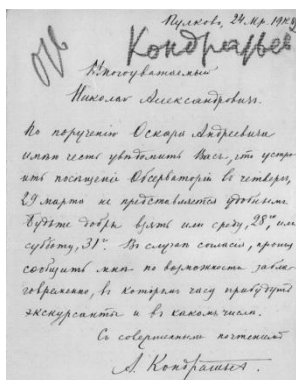 Пулково, 24. Мр. 19
Кондратьев
Многоуважаемый
Николай Александровичъ.
По порученію Оскара Андреевича
имѣю честь увѣдомить Васъ, что устро-
ить посѣщеніе Обсерваторіи въ четвергъ,
29 марта не представляется удобнымъ.
Будьте добры взять или среду, 28го, или
субботу, 31го. Въ случаѣ согласія, прошу
сообщить мнѣ по возможности забла-
говременно, въ которомъ часу прибудутъ
экскурсанты и въ какомъ числѣ.
Съ совершеннымъ почтеніемъ
А. Кондратьев